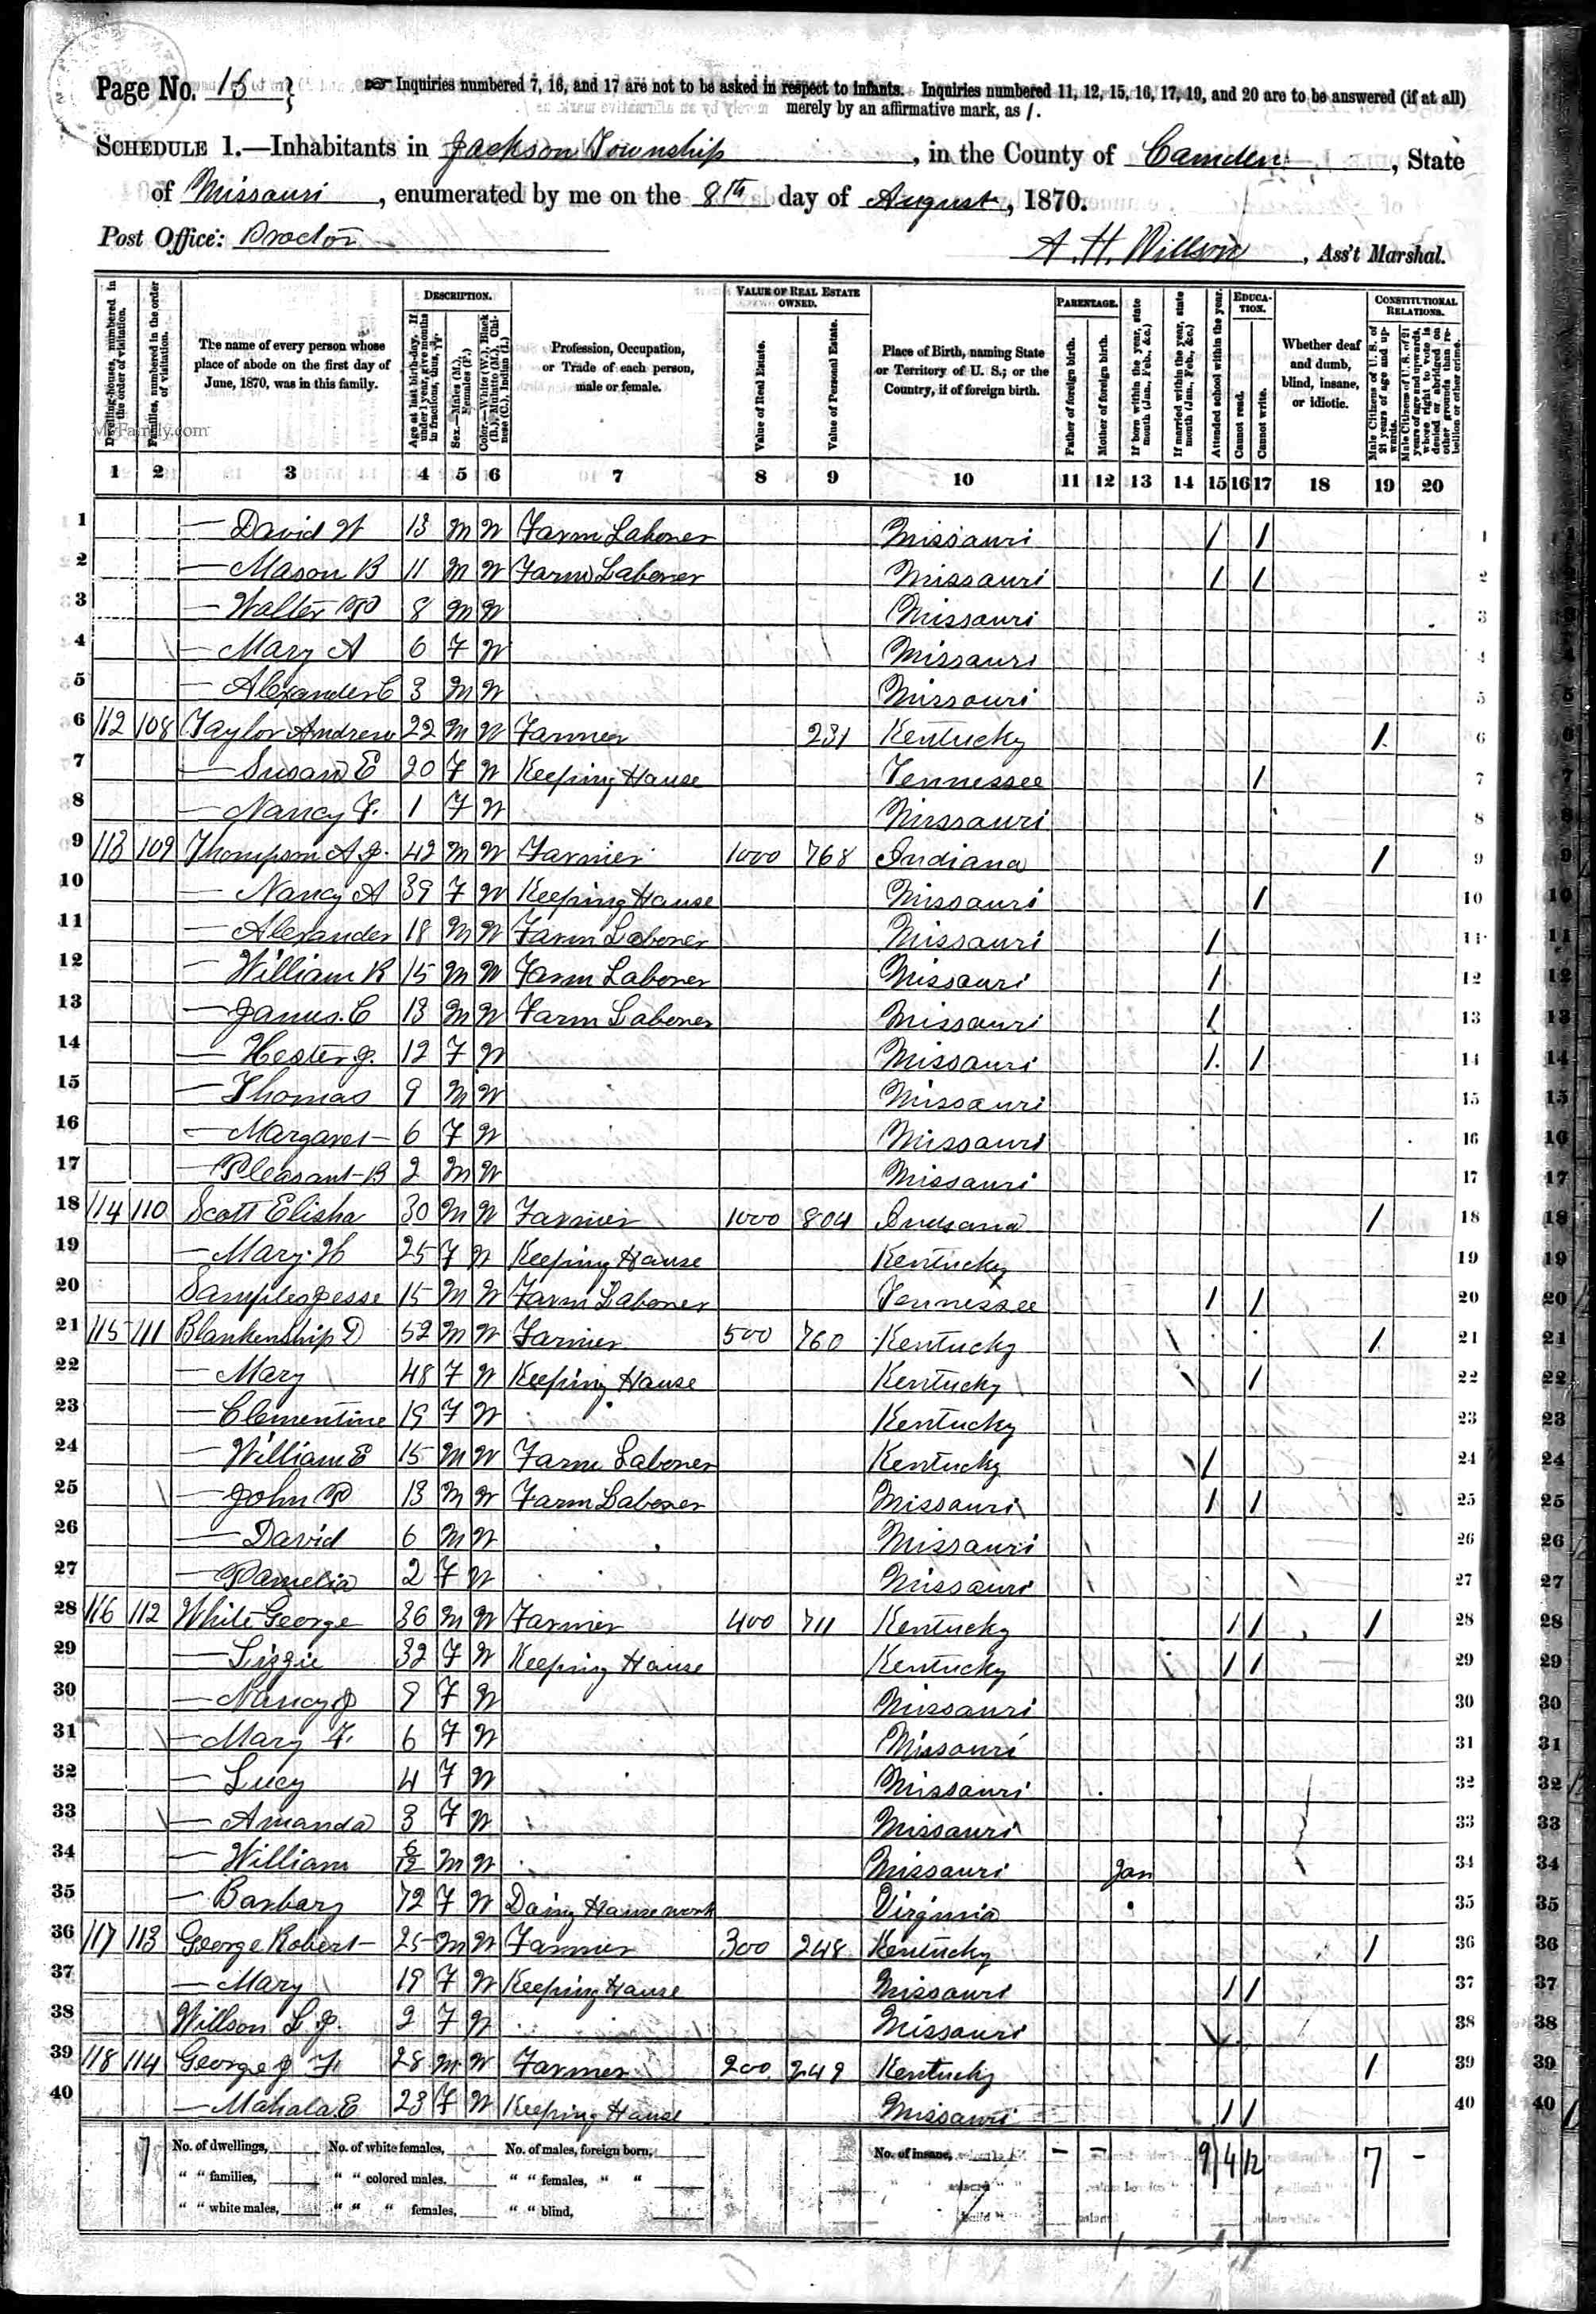 Page No. 15
Inquiries numbered 7, 16, and 17 are not to be asked in respect to infants. Inquiries numbered 11, 12, 15, 16, 17, 19, and 20 are to be answered (if at all)
merely by an affirmative mark, as /.
SCHEDULE 1.—Inhabitants in Jackson Township, in the County of Camden, State
of Missouri, enumerated by me on the 8th day of August, 1870.
Post Office: Proctor
A. H. Willson, Ass't Marshal.
Dwelling-houses, numbered in the order of visitation.
Families, numbered in the order of visitation.
The name of every person whose place of abode on the first day of June, 1870, was in this family.
DESCRIPTION.
Age at last birth-day. If under 1 year, give months in fractions, thus, 3/12.
Sex.—Males (M.), Females (F.)
Color.—White (W.), Black (B.), Mulatto (M.), Chinese (C.), Indian (I.)
Profession, Occupation, or Trade of each person, male or female.
VALUE OF REAL ESTATE OWNED.
Value of Real Estate.
Value of Personal Estate.
Place of Birth, naming State or Territory of U. S.; or the Country, if of foreign birth.
PARENTAGE.
Father of foreign birth.
Mother of foreign birth.
If born within the year, state month (Jan., Feb., &c.)
If married within the year, state month (Jan., Feb., &c.)
Attended school within the year.
EDUCATION.
Cannot read.
Cannot write.
Whether deaf and dumb, blind, insane, or idiotic.
CONSTITUTIONAL RELATIONS.
Male Citizens of U. S. of 21 years of age and upwards.
Male Citizens of U. S. of 21 years of age and upwards, whose right to vote is denied or abridged on other grounds than rebellion or other crime.
1 2 3 4 5 6 7 8 9 10 11 12 13 14 15 16 17 18 19 20
1 — David W 13 M W Farm Laborer Missouri / / 1
2 — Mason B 11 M W Farm Laborer Missouri / / 2
3 — Walter P 8 M W Missouri 3
4 — Mary A 6 F W Missouri 4
5 — Alexander C 3 M W Missouri 5
6 112 108 Taylor Andrew 22 M W Farmer 231 Kentucky / 6
7 — Susan E 20 F W Keeping House Tennessee / 7
8 — Nancy F. 1 F W Missouri 8
9 113 109 Thompson A J. 42 M W Farmer 1000 768 Indiana / 9
10 — Nancy A 39 F W Keeping House Missouri / 10
11 — Alexander 18 M W Farm Laborer Missouri / 11
12 — William R 15 M W Farm Laborer Missouri / 12
13 — James. C 13 M W Farm Laborer Missouri / 13
14 — Hester J. 12 F W Missouri / / 14
15 — Thomas 9 M W Missouri 15
16 — Margaret 6 F W Missouri 16
17 — Pleasant B 2 M W Missouri 17
18 114 110 Scott Elisha 30 M W Farmer 1000 804 Indiana / 18
19 — Mary. H 25 F W Keeping House Kentucky 19
20 Samples Jesse 15 M W Farm Laborer Tennessee / / 20
21 115 111 Blankenship D 52 M W Farmer 500 760 Kentucky / 21
22 — Mary 48 F W Keeping House Kentucky / 22
23 — Clementine 19 F W Kentucky 23
24 — William E 15 M W Farm Laborer Kentucky / 24
25 — John P 13 M W Farm Laborer Missouri / / 25
26 — David 6 M W Missouri 26
27 — Pamelia 2 F W Missouri 27
28 116 112 White George 36 M W Farmer 400 711 Kentucky / / / 28
29 — Lizzie 32 F W Keeping House Kentucky / / 29
30 — Nancy J 9 F W Missouri 30
31 — Mary F. 6 F W Missouri 31
32 — Lucy 4 F W Missouri 32
33 — Amanda 3 F W Missouri 33
34 — William 6/12 M W Missouri Jan 34
35 — Barbary 72 F W Doing House work Virginia 35
36 117 113 George Robert 25 M W Farmer 300 248 Kentucky / 36
37 — Mary 19 F W Keeping House Missouri / / 37
38 Willson L J. 2 F W Missouri 38
39 118 114 George J F. 28 M W Farmer 200 249 Kentucky / 39
40 — Mahala E 23 F W Keeping House Missouri / / 40
7 No. of dwellings, No. of white females, No. of males, foreign born, No. of insane, — — 9 4 12 7 —
" " families, " " colored males, " " females, " "
" " white males, " " " females, " " blind,